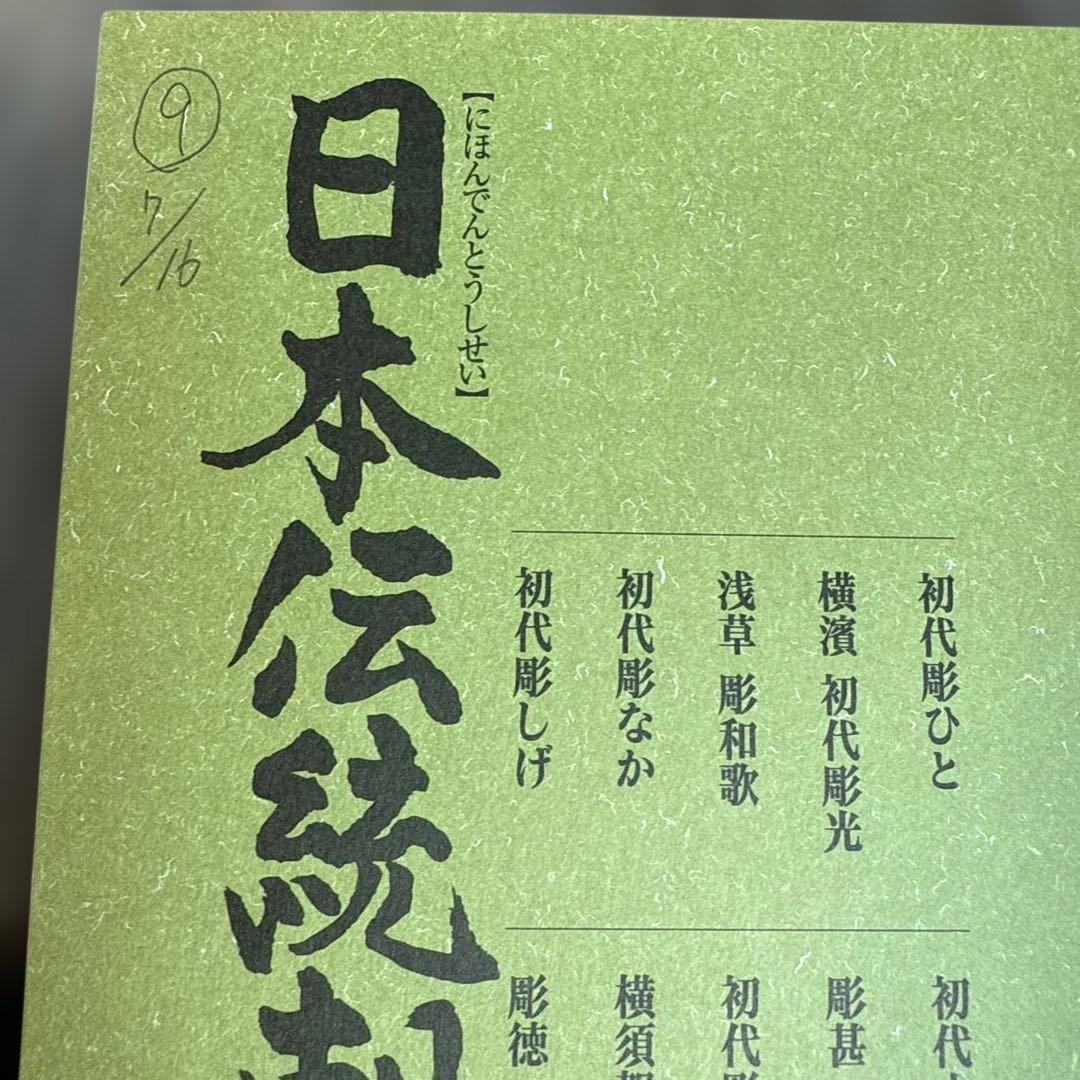 ⑨
7/16
日本伝統刺
【にほんでんとうしせい】
初代彫ひと
横濱 初代彫光
浅草 彫和歌
初代彫なか
初代彫しげ
初代
彫甚
初代彫
横須賀
彫徳